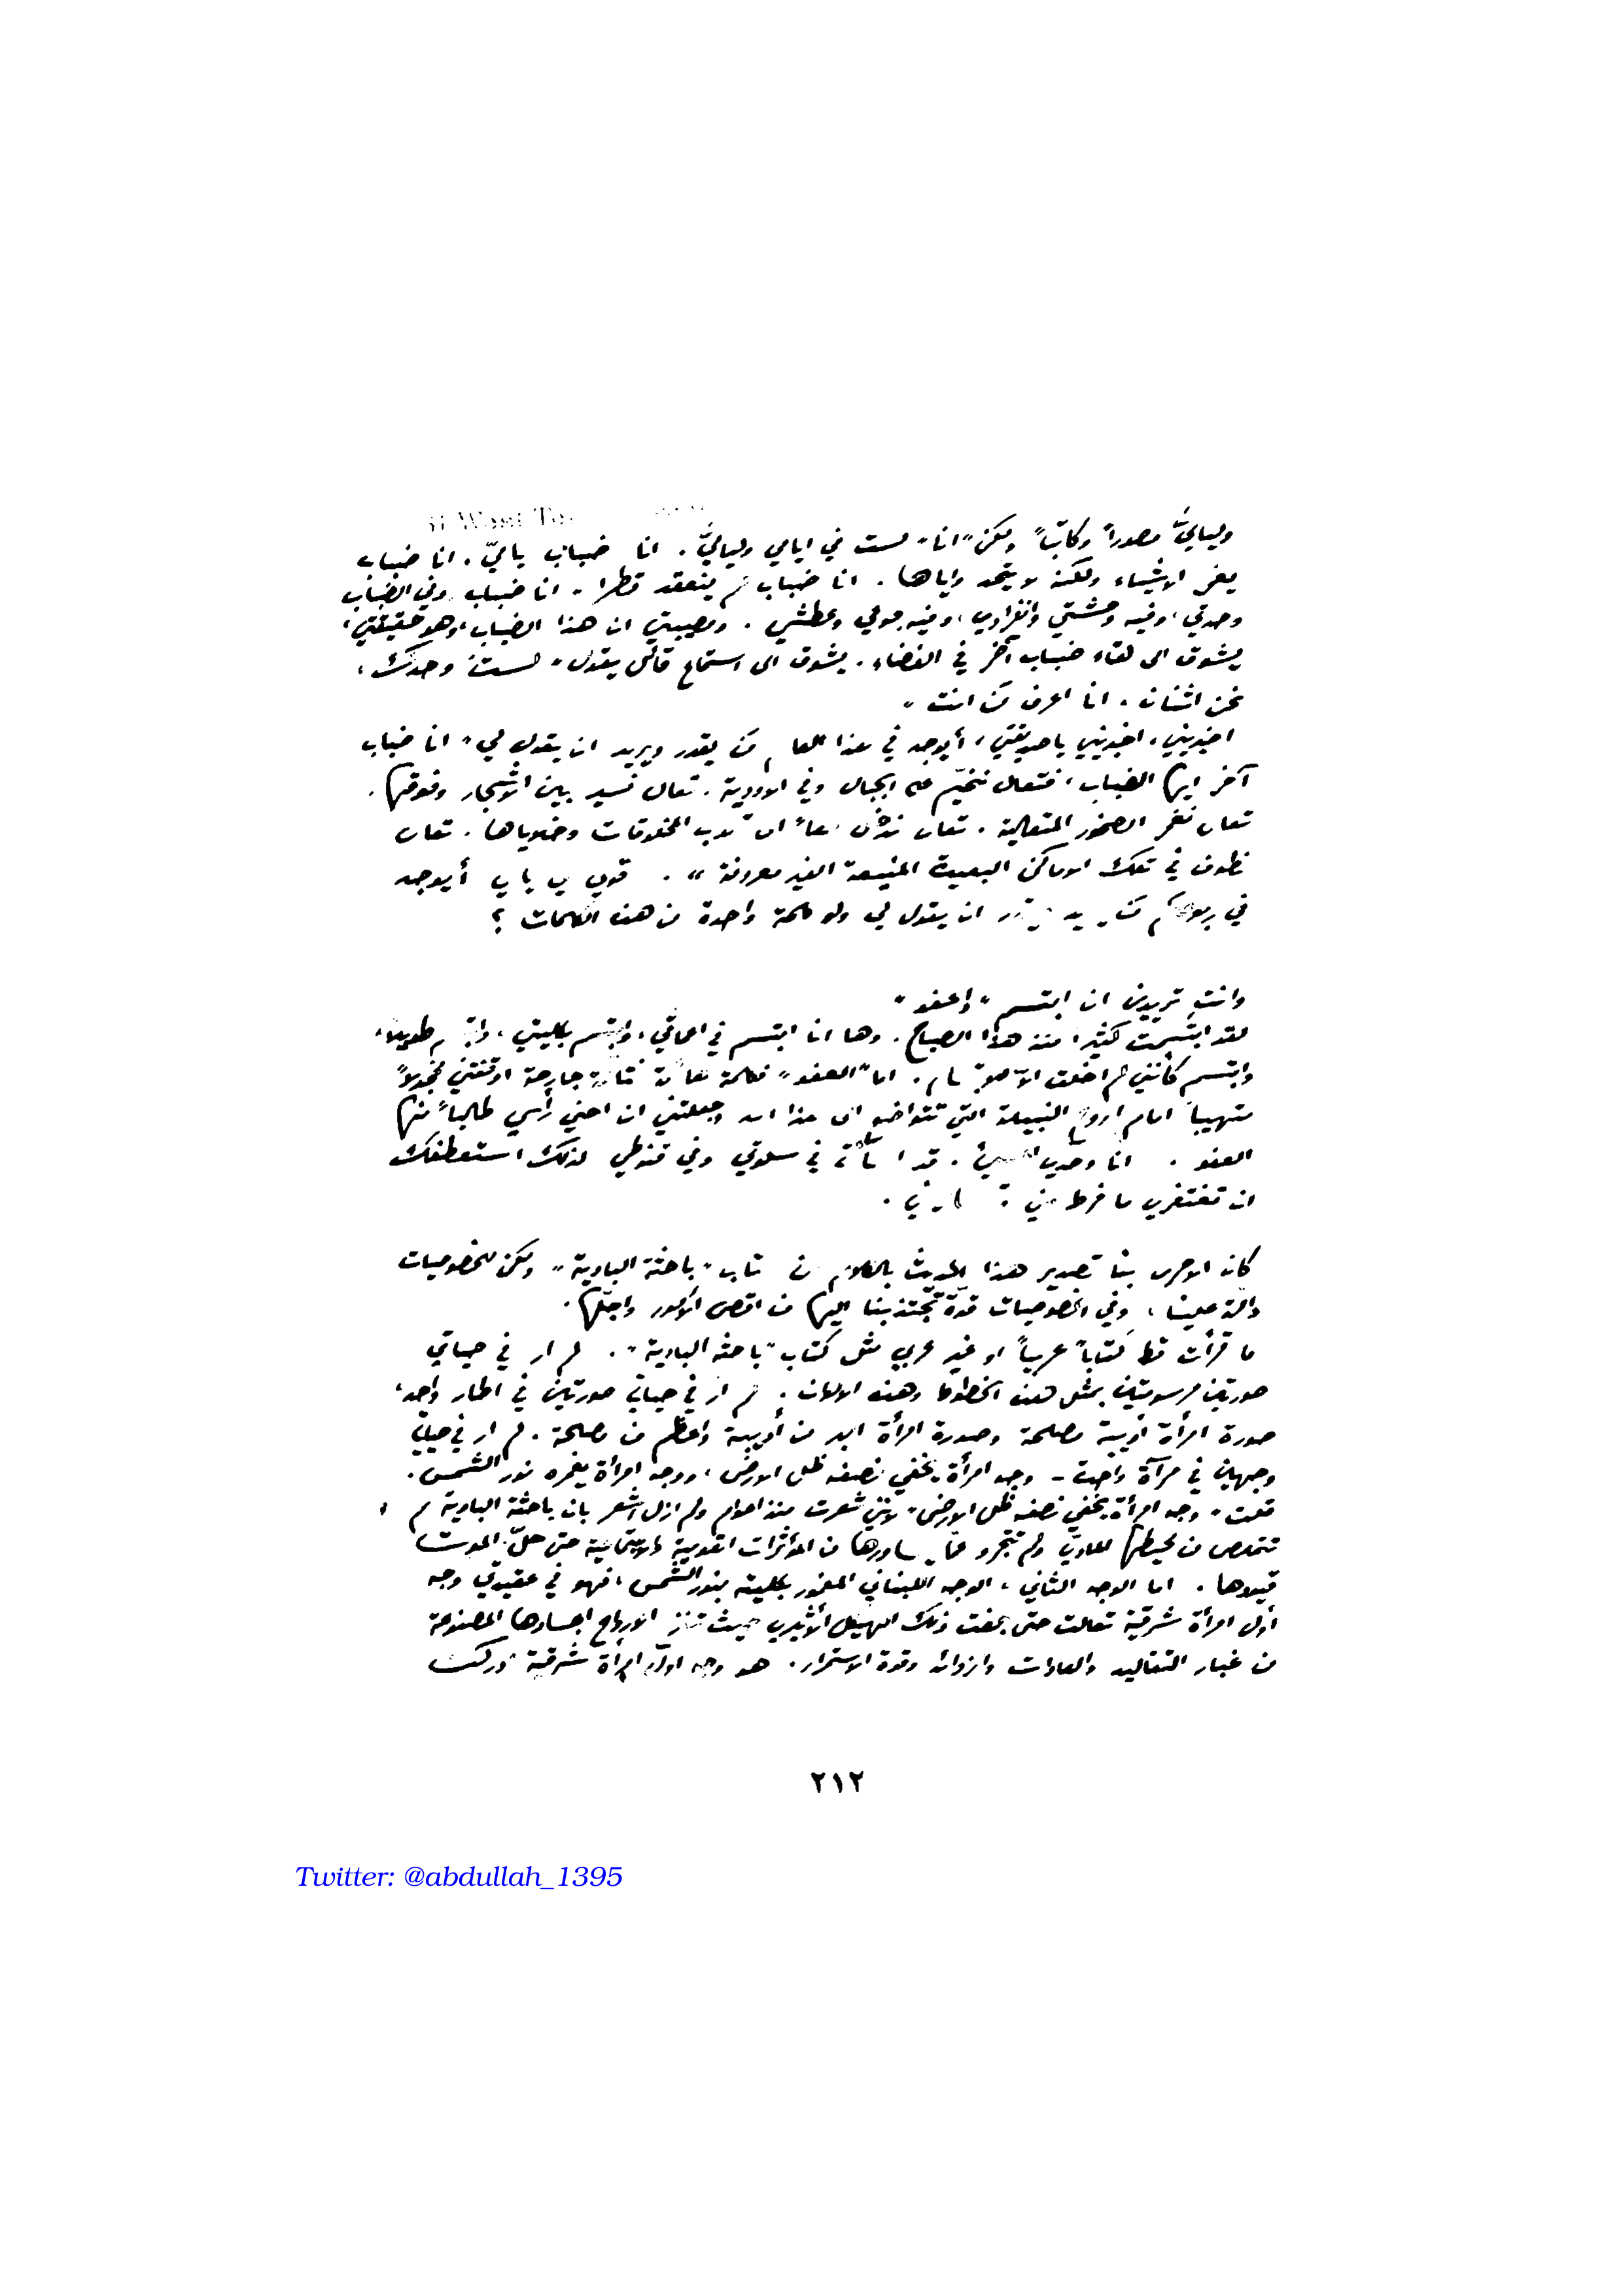 ولياليَّ مصوراً وكاتباً ولكن "انا" لست في ايامي ولياليَّ. انا ضباب يا ميّ. انا ضباب
يغمر الاشياء ولكنه لا يتحد واياها. انا ضباب لم ينعقد قطرا. انا ضباب وفي الضباب
وحدتي، وفيه وحشتي وانفرادي، وفيه جوعي وعطشي. ومصيبتي ان هذا الضباب، وهو حقيقتي،
يشوق الى لقاء ضباب آخر في الفضاء. يشوق الى استماع قائل يقول " لستَ وحدك،
نحن اثنان. انا اعرف مَن انت "
اخبريني، اخبريني يا صديقتي، أيوجد في هذا العالم مَن يقدر ويريد ان يقول لي " انا ضباب
آخر ايها الضباب، فتعال نخيّم على الجبال وفي الاودية. تعال نسير بين الاشجار وفوقها.
تعال نغمر الصخور المتعالية. تعال المخلوقات وخلاياها. تعال
نطوف في تلك الاماكن البعيدة المنيعة الغير معروفة ". قولي لي يا مي أيوجد
في ربوعكم مَن ان يقول لي ولو كلمة واحدة من هذه الكلمات ؟
وانتِ تريدين ان ابتسم " واعفو "
لقد ابتسمت كثيرا منذ هذا الصباح. وها انا ابتسم في اعماقي، وابتسم بكليتي، وابتسم طويلاً،
وابتسم كأنني لم اخلق الا. اما "العفو" فكلمة جارحة اوقفتني مخجولاً
متهيباً امام الروح النبيلة التي تتواضع الى هذا الحد وجعلتني ان احني رأسي طالباً منها
العفو. انا وحدي المسيء. قد اسأت في سكوتي وفي قنوطي لذلك استعطفك
ان تغتفري ما فرط مني
كان الاحرى بنا تصدير هذا الحديث بالكلام كتاب "باحثة البادية" ولكن للخصوصيات
دالّة علينا، وفي الخصوصيات قوّة تجتذبنا اليها من اقصى الامور واجلّها.
ما قرأت قط كتاباً عربياً او غير عربي مثل كتاب "باحثة البادية". لم ار في حياتي
صورتين مرسومتين بمثل هذه الخطوط وهذه الالوان. لم ار في حياتي صورتين في اطار واحد،
صورة امرأة أديبة مصلحة وصورة امرأة ابعد من أديبة واعظم من مصلحة. لم ار في حياتي
وجهين في مرآة واحدة - وجه امرأة يخفي نصفه ظل الارض، ووجه امرأة يغمره نور الشمس.
قلت " وجه امرأة يخفي نصفه ظل الارض" لانني شعرت منذ اعوام ولم ازل اشعر بان باحثة البادية لم
تتملص من محيطها المادي ولم تتجرد عمّا ساورها من المؤثرات القومية والاجتماعية حتى حلّ الموت
قيودها. اما الوجه الثاني، الوجه اللبناني المغمور بكليته بنور الشمس، فهو في عقيدتي وجه
أول امرأة شرقية تعالت حتى بلغت ذلك الهيكل الأثيري حيث الارواح اجسادها المصنوعة
من غبار التقاليد والعادات وقوة الاستمرار. هو وجه اول امرأة شرقية ادركت
٢١٢
Twitter: @abdullah_1395